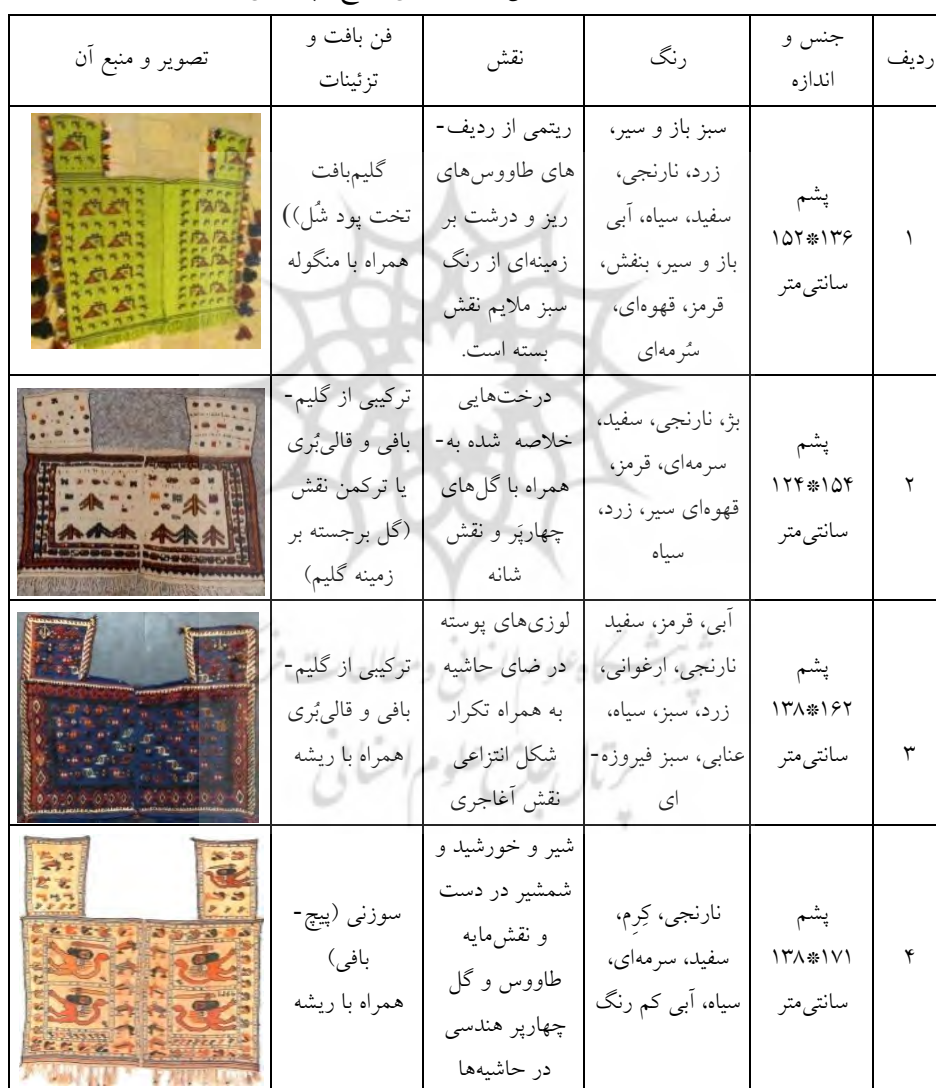 ردیف
جنس و
اندازه
رنگ
نقش
فن بافت و
تزئینات
تصویر و منبع آن
۱
پشم
۱۳۶*۱۵۲
سانتی‌متر
سبز باز و سیر،
زرد، نارنجی،
سفید، سیاه، آبی
باز و سیر، بنفش،
قرمز، قهوه‌ای،
سُرمه‌ای
ریتمی از ردیف-
های طاووس‌های
ریز و درشت بر
زمینه‌ای از رنگ
سبز ملایم نقش
بسته است.
گلیم‌بافت
تخت پود شُل))
همراه با منگوله
۲
پشم
۱۵۴*۱۲۴
سانتی‌متر
بژ، نارنجی، سفید،
سرمه‌ای، قرمز،
قهوه‌ای سیر، زرد،
سیاه
درخت‌هایی
خلاصه شده به-
همراه با گل‌های
چهارپَر و نقش
شانه
ترکیبی از گلیم-
بافی و قالی‌بُری
یا ترکمن نقش
(گل برجسته بر
زمینه گلیم)
۳
پشم
۱۶۲*۱۳۸
سانتی‌متر
آبی، قرمز، سفید
نارنجی، ارغوانی،
زرد، سبز، سیاه،
عنابی، سبز فیروزه-
ای
لوزی‌های پوسته
در ضای حاشیه
به همراه تکرار
شکل انتزاعی
نقش آغاجری
ترکیبی از گلیم-
بافی و قالی‌بُری
همراه با ریشه
۴
پشم
۱۷۱*۱۳۸
سانتی‌متر
نارنجی، کِرِم،
سفید، سرمه‌ای،
سیاه، آبی کم رنگ
شیر و خورشید و
شمشیر در دست
و نقش‌مایه
طاووس و گل
چهارپر هندسی
در حاشیه‌ها
سوزنی (پیچ-
بافی)
همراه با ریشه
پژوهشگاه علوم انسانی و مطالعات فرهنگی
پرتال جامع علوم انسانی